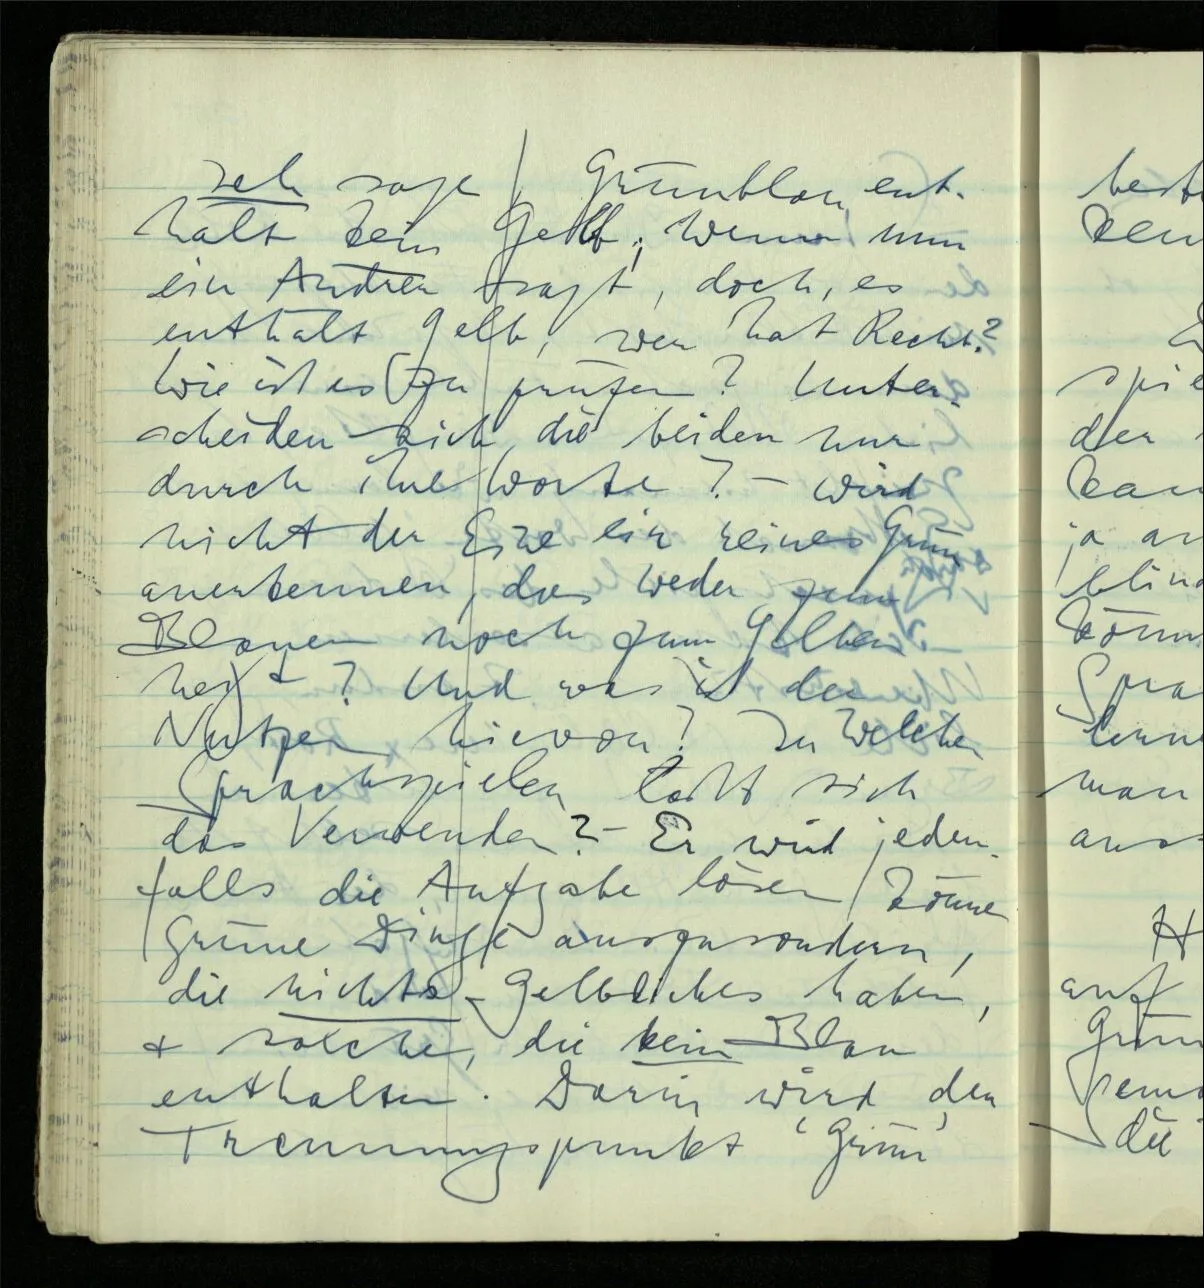 Ich sage Grünblau ent-
hält kein Gelb; wenn nun
ein Andrer sagt, doch, es
enthält Gelb, wer hat Recht?
Wie ist es zu prüfen? Unter-
scheiden sich die beiden nur
durch ihre Worte? – Wird
nicht der Eine ein reines Grün
anerkennen, das weder zum
Blauen noch zum Gelben
neigt? Und was ist der
Nutzen hievon? In welchen
Sprachspielen läßt sich
das Verwenden? – Er wird jeden-
falls die Aufgabe lösen können
grüne Dinge auszusondern,
die nichts Gelbliches haben,
+ solche, die kein Blau
enthalten. Darin wird der
Trennungspunkt 'Grün'
spie
der
ja
man
H
auf
die